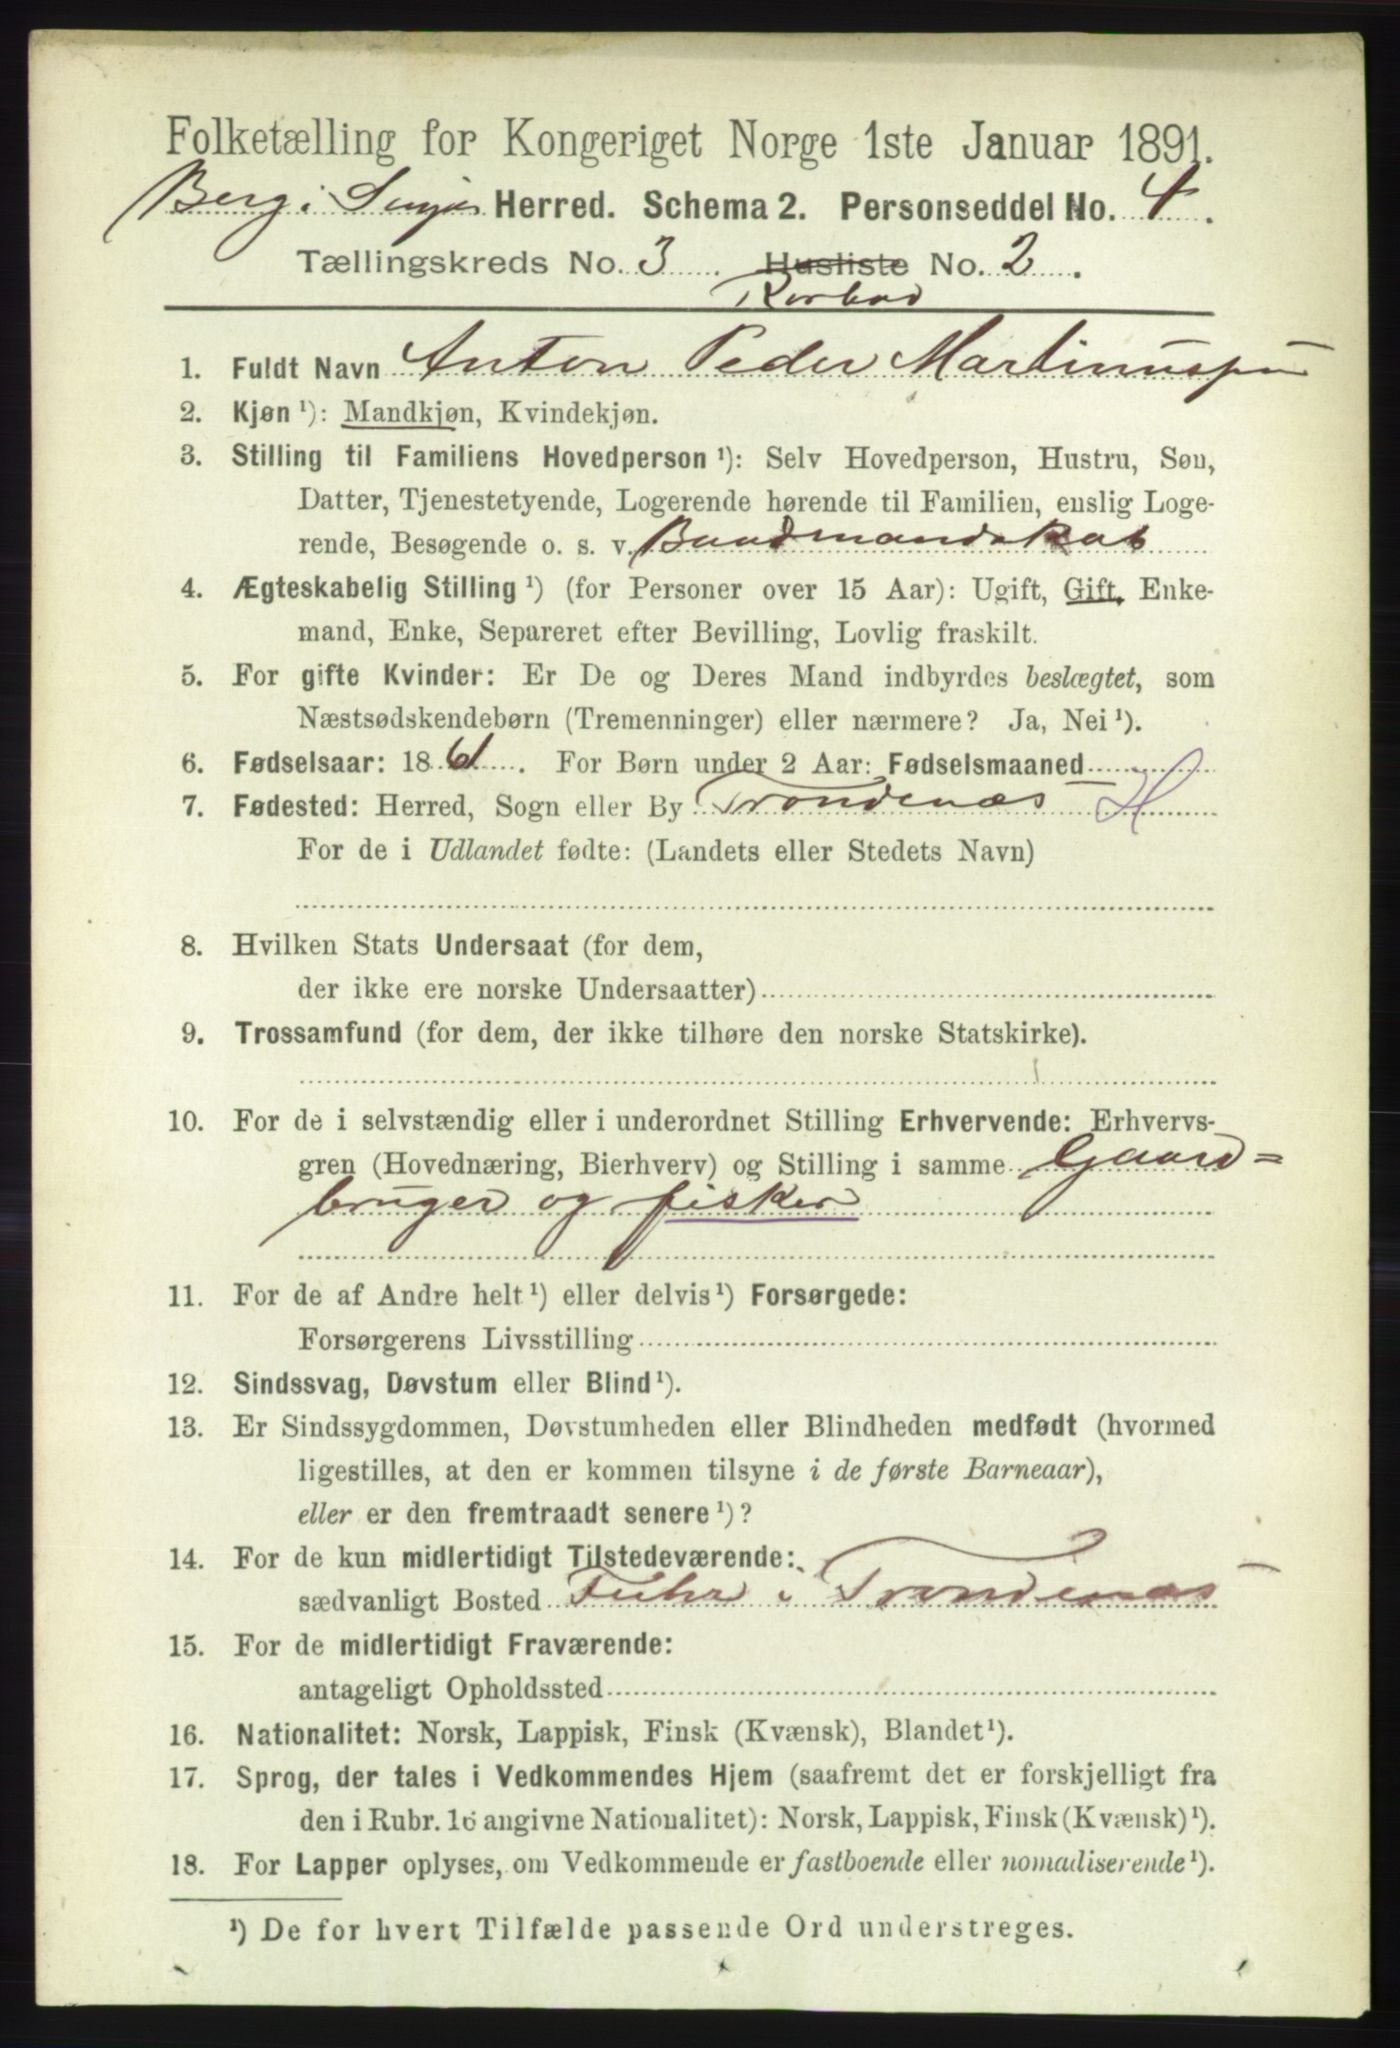 Folketælling for Kongeriget Norge 1ste Januar 1891.
Berg i Senjen Herred. Schema 2. Personseddel No. 4.
Tællingskreds No. 3. Husliste No. 2.
Rorbod
1. Fuldt Navn Anton Peder Martinussen
2. Kjøn ¹): Mandkjøn, Kvindekjøn.
3. Stilling til Familiens Hovedperson ¹): Selv Hovedperson, Hustru, Søn,
Datter, Tjenestetyende, Logerende hørende til Familien, enslig Loge-
rende, Besøgende o. s. v. Baadmandskab
4. Ægteskabelig Stilling ¹) (for Personer over 15 Aar): Ugift, Gift, Enke-
mand, Enke, Separeret efter Bevilling, Lovlig fraskilt.
5. For gifte Kvinder: Er De og Deres Mand indbyrdes beslægtet, som
Næstsødskendebørn (Tremenninger) eller nærmere? Ja, Nei ¹).
6. Fødselsaar: 1861. For Børn under 2 Aar: Fødselsmaaned
7. Fødested: Herred, Sogn eller By Trondenæs H
For de i Udlandet fødte: (Landets eller Stedets Navn)
8. Hvilken Stats Undersaat (for dem,
der ikke ere norske Undersaatter)
9. Trossamfund (for dem, der ikke tilhøre den norske Statskirke).
10. For de i selvstændig eller i underordnet Stilling Erhvervende: Erhvervs-
gren (Hovednæring, Bierhverv) og Stilling i samme Gaard=
bruger og fisker
11. For de af Andre helt ¹) eller delvis ¹) Forsørgede:
Forsørgerens Livsstilling
12. Sindssvag, Døvstum eller Blind ¹).
13. Er Sindssygdommen, Døvstumheden eller Blindheden medfødt (hvormed
ligestilles, at den er kommen tilsyne i de første Barneaar),
eller er den fremtraadt senere ¹)?
14. For de kun midlertidigt Tilstedeværende:
sædvanligt Bosted i Trondenæs
15. For de midlertidigt Fraværende:
antageligt Opholdssted
16. Nationalitet: Norsk, Lappisk, Finsk (Kvænsk), Blandet ¹).
17. Sprog, der tales i Vedkommendes Hjem (saafremt det er forskjelligt fra
den i Rubr. 16 angivne Nationalitet): Norsk, Lappisk, Finsk (Kvænsk) ¹).
18. For Lapper oplyses, om Vedkommende er fastboende eller nomadiserende ¹).
¹) De for hvert Tilfælde passende Ord understreges.